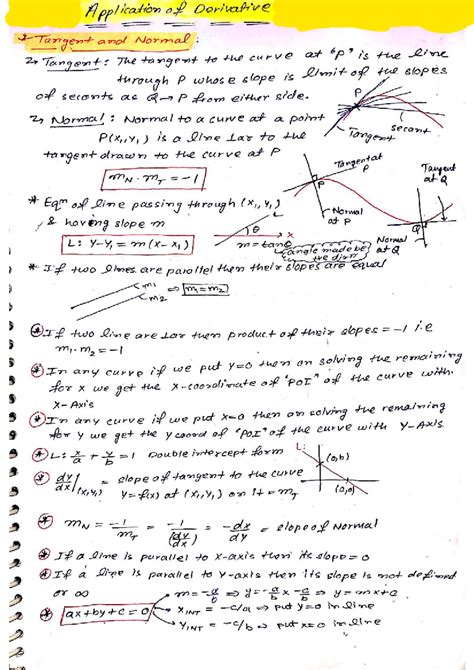 Application of Derivative
* Tangent and Normal:
Tangent: The tangent to the curve at "P" is the line
through P whose slope is limit of the slopes
of secants as Q→P from either side.
P
secant
Tangent
Normal: Normal to a curve at a point
P(x₁,y₁) is a line ⊥ar to the
tangent drawn to the curve at P
m_N . m_T = -1
Tangent at P
P
Normal at P
Tangent at Q
Q
Normal at Q
* Eqn of line passing through (x₁,y₁)
& having slope m
L: y-y₁ = m(x-x₁)
θ
x
m = tanθ
angle made by the dirn
* If two lines are parallel then their slopes are equal
m₁
m₂
⇒ m₁=m₂
* If two line are ⊥ar then product of their slopes = -1 i.e
m₁.m₂ = -1
* In any curve if we put y=0 then on solving the remaining
for x we get the x-coordinate of "POI" of the curve with
X-Axis
* In any curve if we put x=0 then on solving the remaining
for y we get the y coord of "POI" of the curve with Y-Axis
* L: x/a + y/b = 1 Double intercept form
L:
(0,b)
(a,0)
* dy/dx](x₁,y₁) = slope of tangent to the curve
y=f(x) at (x₁,y₁) on it = m_T
* m_N = -1/m_T = -1/(dy/dx) = -dx/dy = slope of Normal
* If a line is parallel to x-axis then its slope = 0
* If a line is parallel to y-axis then its slope is not defined
or ∞
* ax+by+c=0
m = -a/b ⇒ y = -a/b x - c/b ⇒ y = mx+c
x_INT = -c/a → put y=0 in line
y_INT = -c/b → put x=0 in line